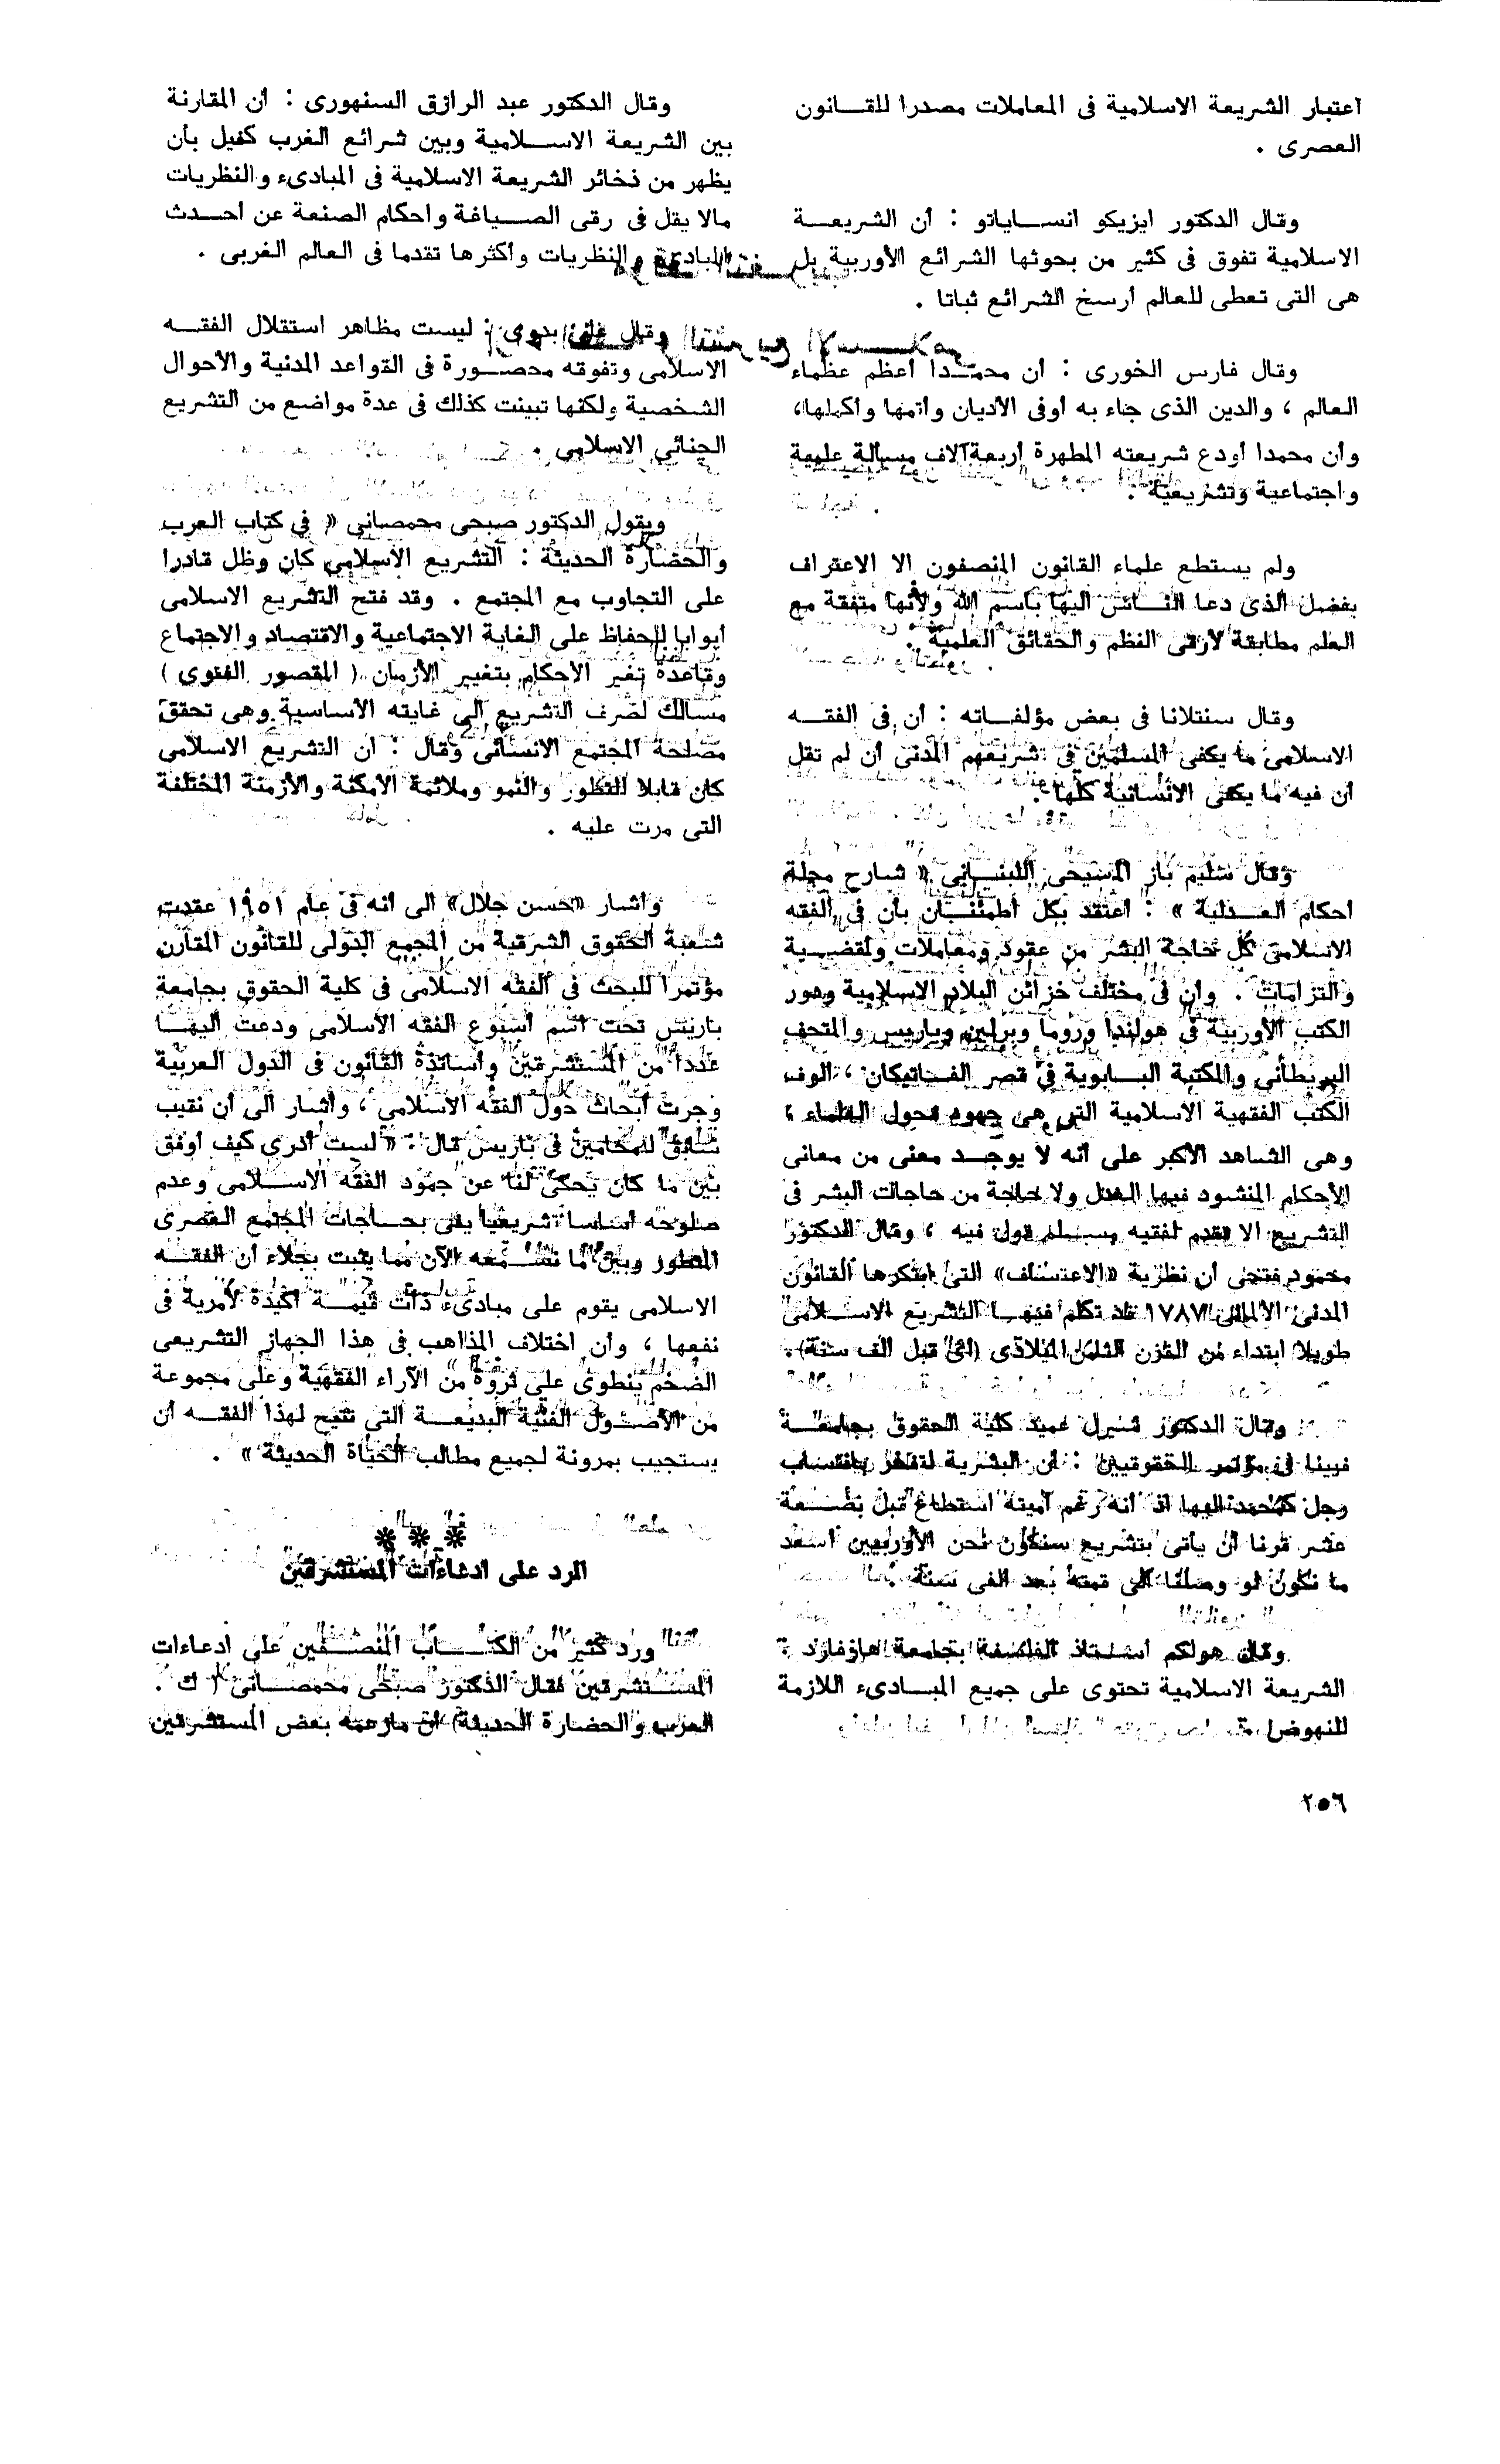 اعتبار الشريعة الاسلامية فى المعاملات مصدرا للقانون
العصرى .
وقال الدكتور ايزيكو انساباتو : أن الشريعة
الاسلامية تفوق فى كثير من بحوثها الشرائع الأوربية بل
هى التى تعطى للعالم أرسخ الشرائع ثباتا .
وقال فارس الخورى : أن محمدا أعظم عظماء
العالم ، والدين الذى جاء به أوفى الأديان وأتمها وأكملها،
وأن محمدا أودع شريعته المطهرة أربعة آلاف مسألة علمية
واجتماعية وتشريعية .
ولم يستطع علماء القانون المنصفون الا الاعتراف
بفضل الذى دعا الناس اليها باسم الله ولأنها متفقة مع
العلم مطابقة لأرقى النظم والحقائق العلمية .
وقال سنتلانا فى بعض مؤلفاته : أن فى الفقه
الاسلامى ما يكفى المسلمين فى تشريعهم المدنى أن لم تقل
أن فيه ما يكفى الانسانية كلها .
وقال سليم باز المسيحى اللبنانى « شارح مجلة
أحكام العدلية » : أعتقد بكل اطمئنان بأن فى الفقه
الاسلامى كل حاجة البشر من عقود ومعاملات وأقضية
والتزامات . وأن فى مختلف خزائن البلاد الاسلامية ودور
الكتب الأوربية فى هولندا وروما وبرلين وباريس والمتحف
البريطانى والمكتبة البابوية فى قصر الفاتيكان ، الوف
الكتب الفقهية الاسلامية التى هى جهود فحول العلماء ،
وهى الشاهد الأكبر على أنه لا يوجد معنى من معانى
الأحكام المنشود فيها العدل ولا حاجة من حاجات البشر فى
التشريع الا تقدم لفقيه مسلم قول فيه ، وقال الدكتور
محمود فتحى أن نظرية «الاعتساف» التى ابتكرها القانون
المدنى الالمانى ١٧٨٧ قد تكلم فيها التشريع الاسلامى
طويلا ابتداء من القرن الثامن الميلادى (أى قبل الف سنة).
وقال الدكتور شبرل عميد كلية الحقوق بجامعة
فيينا فى مؤتمر الحقوقيين : أن البشرية لتفخر بانتساب
رجل كمحمد اليها اذ أنه رغم أميته استطاع قبل بضعة
عشر قرنا أن يأتى بتشريع سنكون نحن الأوربيين أسعد
ما نكون لو وصلنا الى قمته بعد الفى سنة .
وقال هولكم أستاذ الفلسفة بجامعة هارفارد :
الشريعة الاسلامية تحتوى على جميع المبادىء اللازمة
للنهوض .
وقال الدكتور عبد الرازق السنهورى : أن المقارنة
بين الشريعة الاسلامية وبين شرائع الغرب كفيل بأن
يظهر من ذخائر الشريعة الاسلامية فى المبادىء والنظريات
مالا يقل فى رقى الصياغة واحكام الصنعة عن أحدث
المبادىء والنظريات وأكثرها تقدما فى العالم الغربى .
وقال على بدوى : ليست مظاهر استقلال الفقه
الاسلامى وتفوقه محصورة فى القواعد المدنية والأحوال
الشخصية ولكنها تبينت كذلك فى عدة مواضع من التشريع
الجنائى الاسلامى .
ويقول الدكتور صبحى محمصانى « فى كتاب العرب
والحضارة الحديثة : التشريع الاسلامى كان وظل قادرا
على التجاوب مع المجتمع . وقد فتح التشريع الاسلامى
أبوابا للحفاظ على الغاية الاجتماعية والاقتصاد والاجتماع
وقاعدة تغير الأحكام بتغيير الأزمان ( المقصور الفتوى )
مسالك لصرف التشريع الى غايته الأساسية وهى تحقق
مصلحة المجتمع الانسانى وقال : أن التشريع الاسلامى
كان قابلا للتطور والنمو وملائمة الأمكنة والأزمنة المختلفة
التى مرت عليه .
وأشار «حسن جلال» الى أنه فى عام ١٩٥١ عقدت
شعبة الحقوق الشرقية من المجمع الدولى للقانون المقارن
مؤتمرا للبحث فى الفقه الاسلامى فى كلية الحقوق بجامعة
باريس تحت اسم أسبوع الفقه الاسلامى ودعت اليها
عددا من المستشرقين وأساتذة القانون فى الدول العربية
وجرت أبحاث حول الفقه الاسلامي ، وأشار الى أن نقيب
سابق للمحامين فى باريس قال : « لست أدرى كيف أوفق
بين ما كان يحكى لنا عن جمود الفقه الاسلامى وعدم
صلوحه أساسا تشريعيا يفى بحاجات المجتمع العصرى
المتطور وبين ما نسمعه الآن مما يثبت بجلاء أن الفقه
الاسلامى يقوم على مبادىء ذات قيمة أكيدة لأمرية فى
نفعها ، وأن اختلاف المذاهب فى هذا الجهاز التشريعى
الضخم ينطوى على ثروة من الآراء الفقهية وعلى مجموعة
من الأصول الفنية البديعة التى تتيح لهذا الفقه أن
يستجيب بمرونة لجميع مطالب الحياة الحديثة » .
* * *
الرد على ادعاءات المستشرقين
ورد كثير من الكتاب المنصفين على ادعاءات
المستشرقين فقال الدكتور صبحى محمصانى ( ك .
العرب والحضارة الحديثة) ان مازعمه بعض المستشرقين
٢٥٦